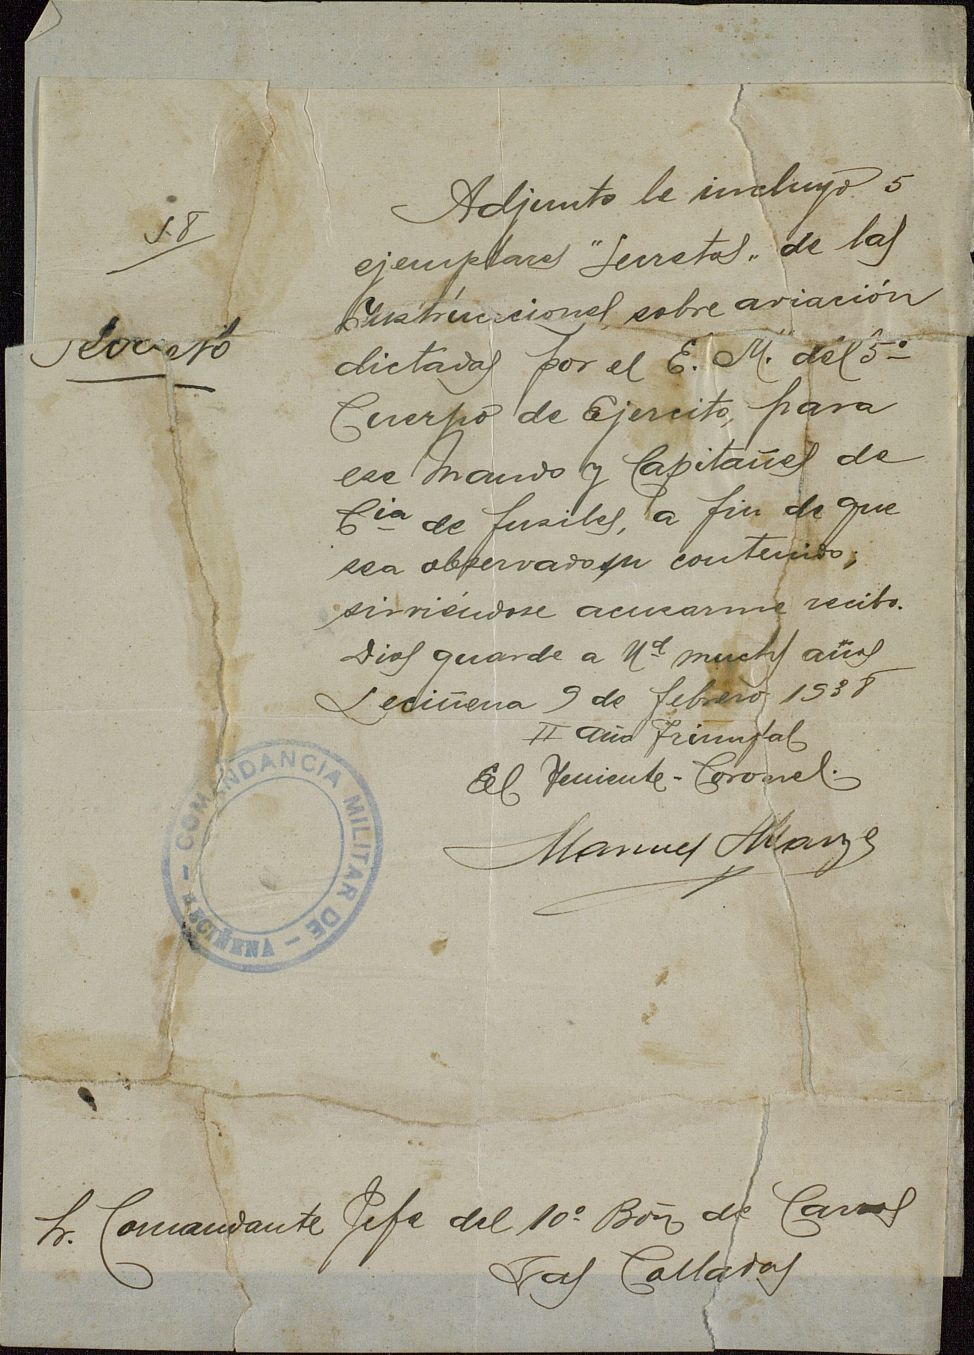 18
Secreto
Adjunto le incluyo 5
ejemplares "Secretos" de las
Instrucciones sobre aviación
dictadas por el E. M. del 5º
Cuerpo de Ejercito, para
ese Mando y Capitanes de
Cia de fusiles, a fin de que
sea observado su contenido;
sirviéndose acusarme recibo.
Dios guarde a Vd muchos años
Leciñena 9 de febrero 1938
II año Triunfal
El Teniente-Coronel.
Manuel
- COMANDANCIA MILITAR DE - LECIÑENA
Sr. Comandante Jefe del 10º Bón de
Las Colladas